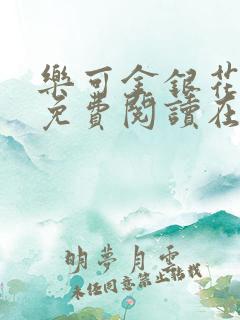 樂可金銀花
免費閱讀在
明夢月雲
未经同意禁止转载